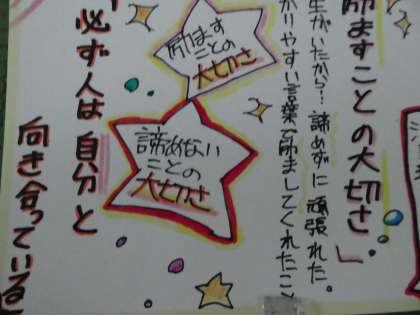 励ますことの大切さ。」
生がいたから…諦めずに頑張れた。
かりやすい言葉で励ましてくれたこ
励ます
ことの
大切さ
諦めない
ことの
大切さ
必ず人は自分と
向き合っている